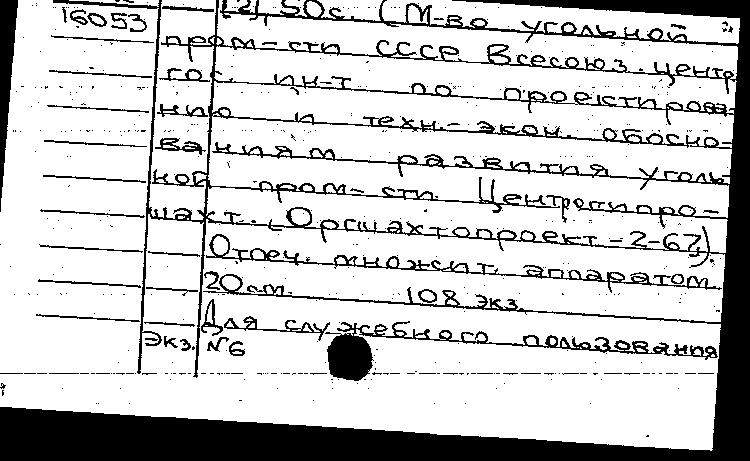 16053 [2], 50с. (М-во угольной
пром-сти СССР Всесоюз. центр.
гос. ин-т по проектирова-
нию и техн.-экон. обосно-
ваниям развития уголь-
ной пром-сти Центрогипро-
шахт. (Оргшахтопроект-2-67).
Отпеч. множит. аппаратом.
20см. 108 экз.
Для служебного пользования
Экз. №6